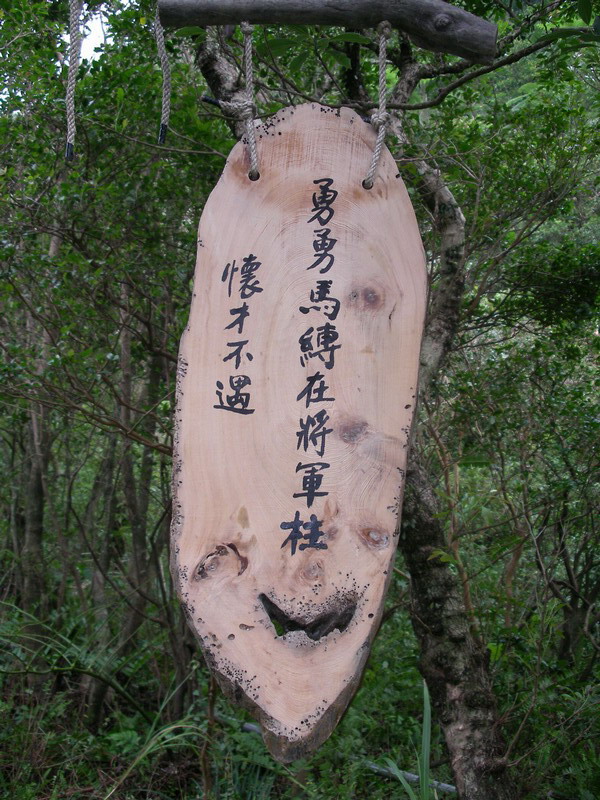 勇勇馬縛在將軍柱
懷才不遇